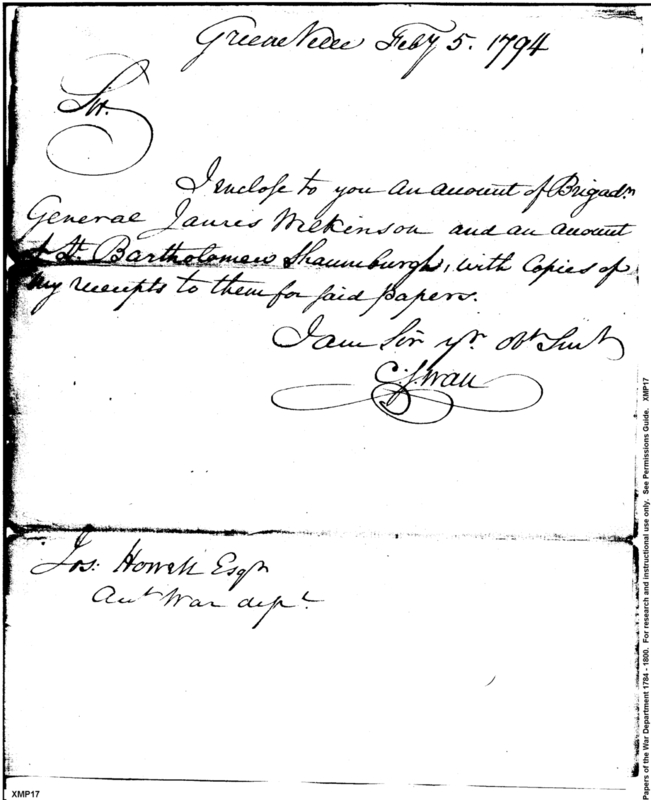 Greene Ville Feby 5. 1794
Sir.
I enclose to you an account of Brigadr
General James Wilkinson and an account
of Lt. Bartholomew Shaumburgh, with Copies of
my receipts to them for said papers.
I am Sir yr. obt Servt
C. Swan
Jos: Howell Esqr
Acct War dept.
Papers of the War Department 1784 - 1800. For research and instructional use only. See Permissions Guide. XMP17
XMP17